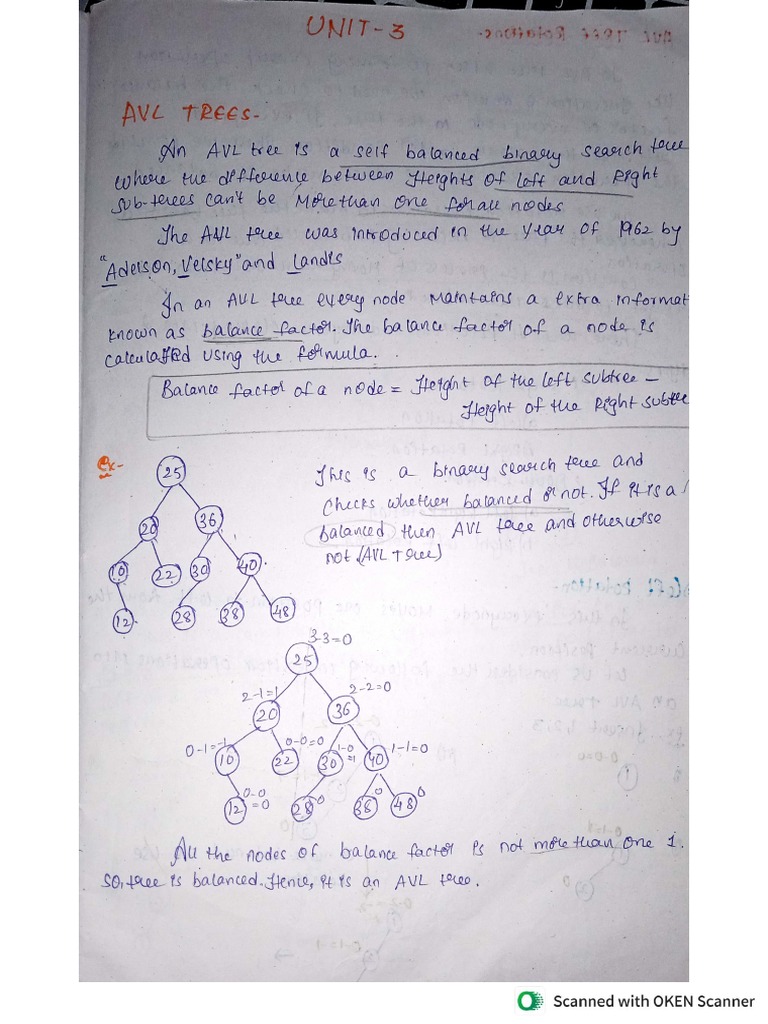 UNIT-3
AVL TREES-
An AVL tree is a self balanced binary search tree
where the difference between Heights of Left and Right
sub-trees can't be More than one for all nodes
The AVL tree was introduced in the year of 1962 by
"Adelson, Velsky" and Landis
In an AVL tree every node Maintains a extra informat
known as balance factor. The balance factor of a node is
calculated using the formula.
Balance factor of a node = Height of the left subtree -
Height of the Right subtree
Ex-
This is a binary search tree and
checks whether balanced or not. If it is a
balanced then AVL tree and otherwise
not (AVL tree)
25
20 36
10 22 30 40
12 28 38 48
3-3=0
25
2-1=1 2-2=0
20 36
0-1=-1 0-0=0 1-0=1 1-1=0
10 22 30 40
0-0=0 0 0 0
12 28 38 48
All the nodes of balance factor is not more than one 1.
so, tree is balanced. Hence, it is an AVL tree.
Scanned with OKEN Scanner